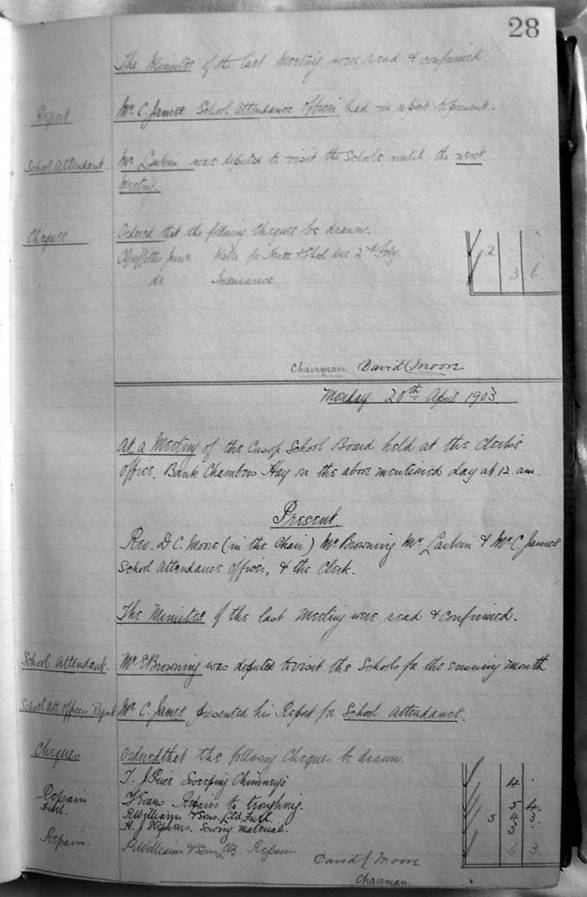 28
The Minutes of the last Meeting were read & confirmed.
Report Mr C. James School Attendance Officer had no report to present.
School Attendant. Mr Larkin was deputed to visit the Schools until the next
Meeting.
Cheques Ordered that the following Cheques be drawn.
Griffiths Junr Water for House & School due 2nd Feby 2
do Insurance 3 6
Chairman David C Moore
Monday 20th April 1903
At a Meeting of the Cusop School Board held at the Clerk's
office, Bank Chambers Hay on the above mentioned day at 12 a.m.
Present.
Rev. D. C. Moore (in the Chair) Mr Browning Mr Larkin & Mr C. James
School Attendance Officer, & the Clerk.
The Minutes of the last Meeting were read & confirmed.
School Attendant. Mr E Browning was deputed to visit the Schools for the ensuing month
School att officer Report Mr C. James presented his Report for School Attendance.
Cheques Ordered that the following Cheques be drawn.
T. J Price Sweeping Chimneys 4
Repairs Evans Repairs to troughing. 5 4
Fuel. R Williams & Sons. Ltd Fuel. 5 3
H. J Stephens. Sewing material. 3
Repairs. R Williams & Sons Ltd Repairs 6 3
David C Moore
Chairman